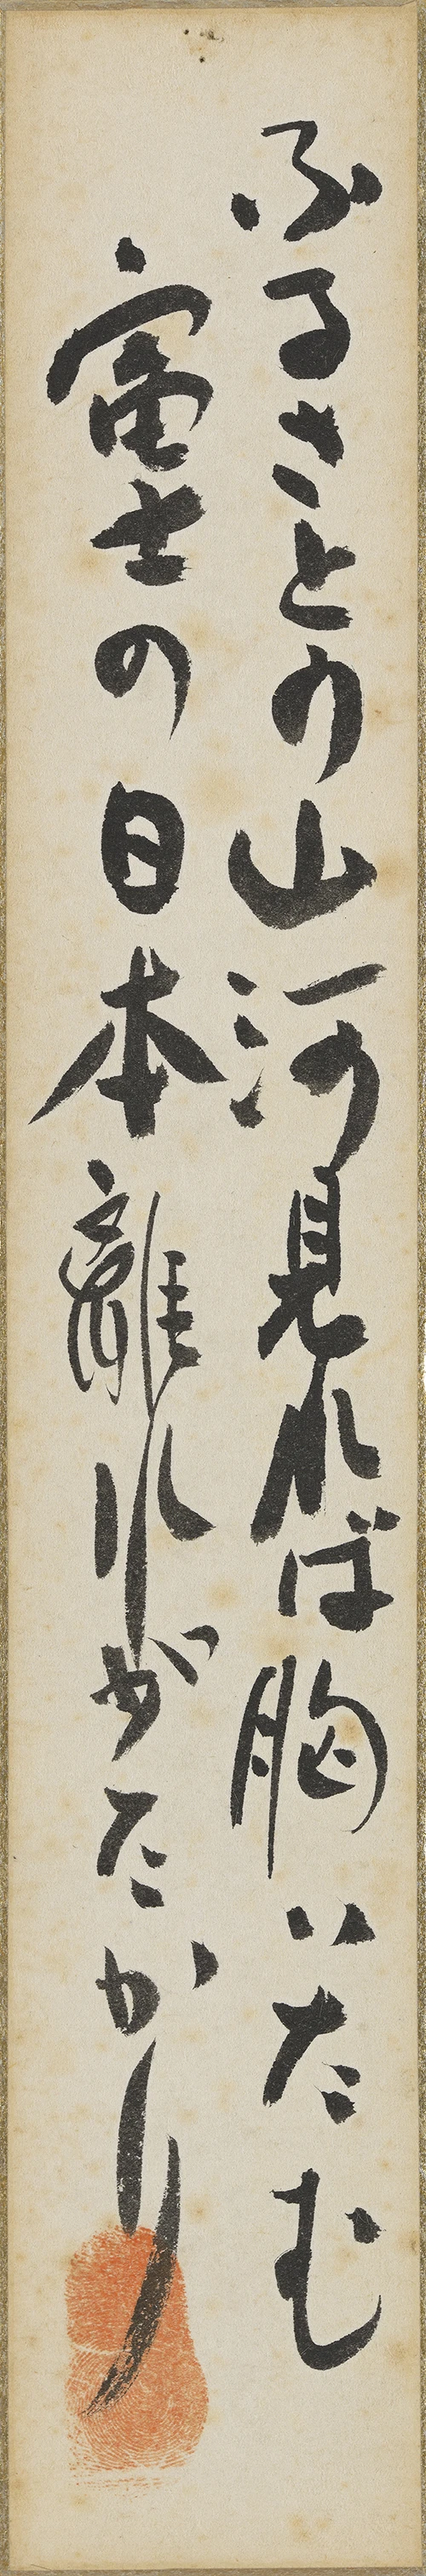 ふるさとの山河見れば胸いたむ
富士の日本離れがたかり